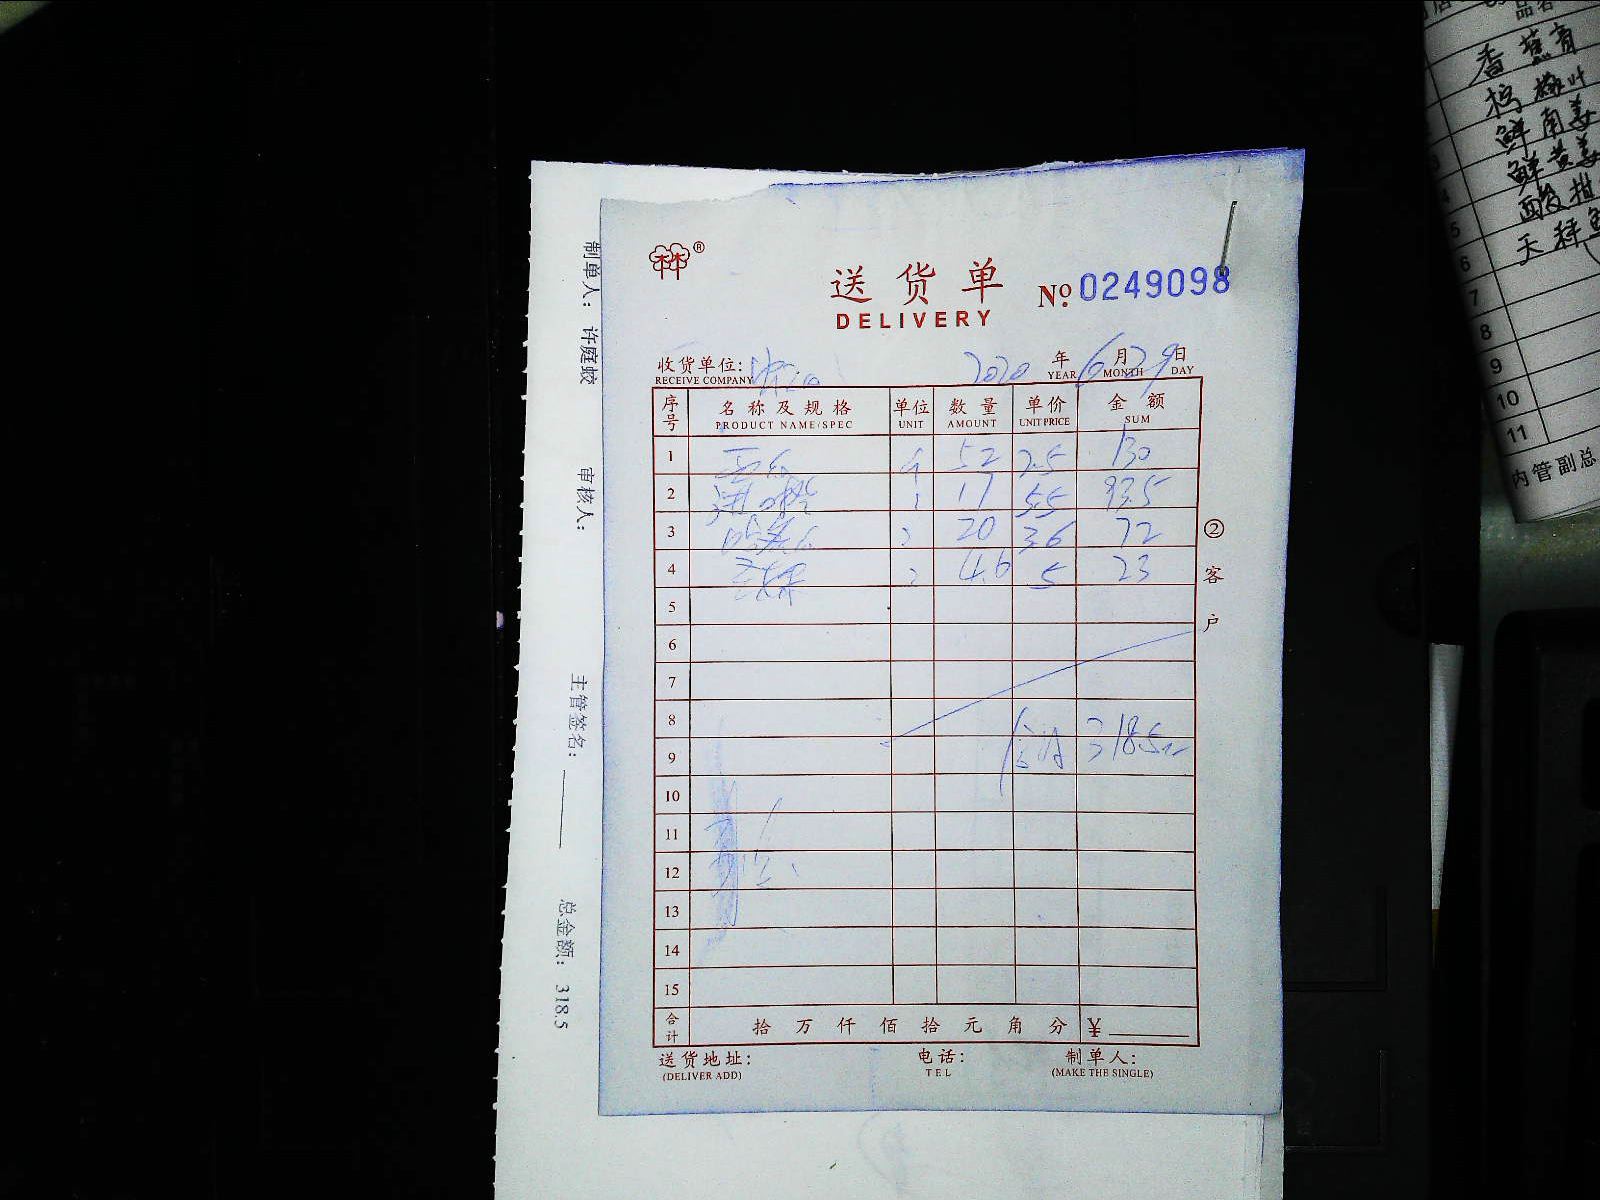 送货单
DELIVERY
№ 0249098
收货单位:
RECEIVE COMPANY
2020 年 6 月 29 日
YEAR MONTH DAY
序号 名称及规格 单位 数量 单价 金额
PRODUCT NAME/SPEC UNIT AMOUNT UNIT PRICE SUM
1 52 2.5 130
2 17 5.5 93.5
3 20 3.6 72
4 4.6 5 23
5
6
7
8
9 318.5元
10
11
12
13
14
15
合计 拾 万 仟 佰 拾 元 角 分 ¥
送货地址: 电话: 制单人:
(DELIVER ADD) TEL (MAKE THE SINGLE)
②客户
制单人: 许庭蛟 审核人: 主管签名: 总金额: 318.5
香蕉
柠檬叶
鲜南姜
鲜黄姜
酸柑
天秤
4
5
6
7
8
9
10
11
内管副总